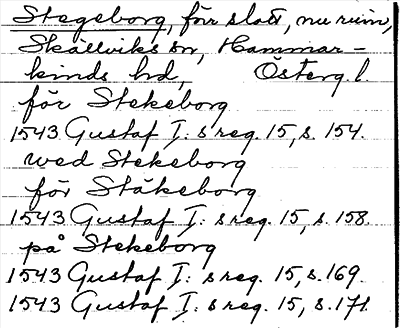 Stegeborg, förr slott, nu ruin,
Skällviks sn, Hammar-
kinds hd, Österg. l.
för Stekeborg
1543 Gustaf I:s reg. 15, s. 154.
wed Stekeborg
för Stäkeborg
1543 Gustaf I:s reg. 15, s. 158.
på Stekeborg
1543 Gustaf I:s reg. 15, s. 169.
1543 Gustaf I:s reg. 15, s. 171.